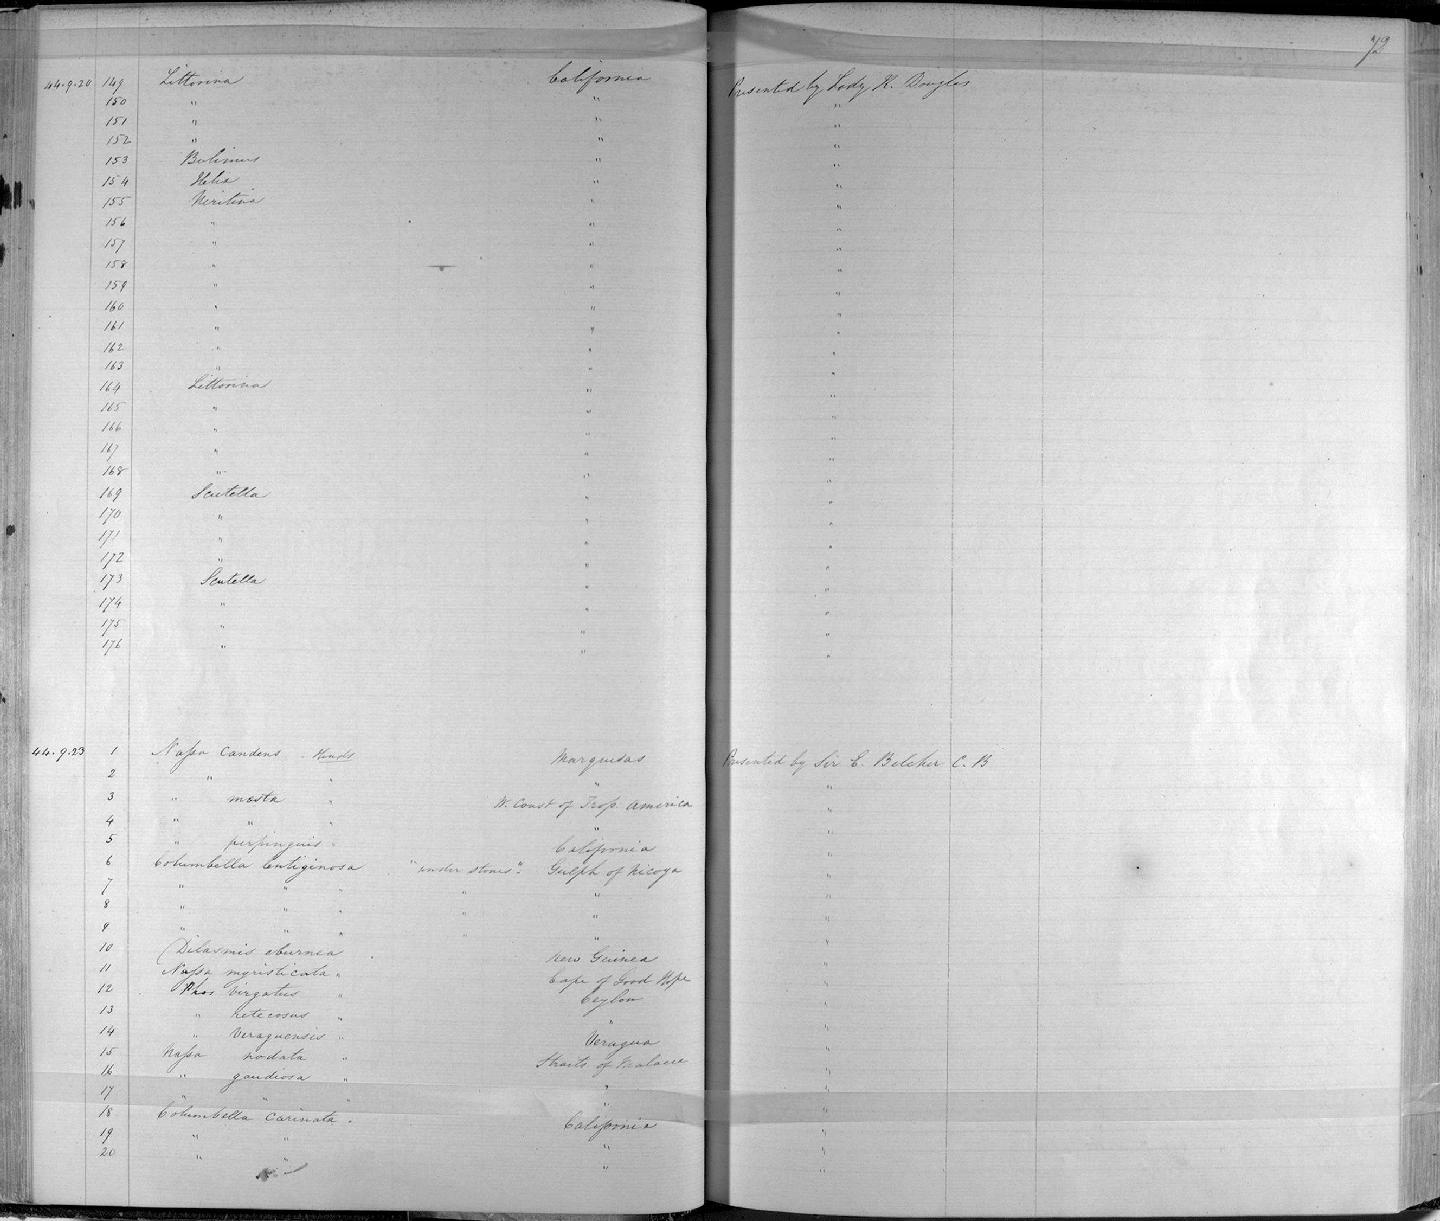 72
44.9.20 149 Littorina California Presented by Lady K. Douglas
150 " " "
151 " " "
152 " " "
153 Bulimus " "
154 Helix " "
155 Neritina " "
156 " " "
157 " " "
158 " " "
159 " " "
160 " " "
161 " " "
162 " " "
163 " " "
164 Littorina " "
165 " " "
166 " " "
167 " " "
168 " " "
169 Scutella " "
170 " " "
171 " " "
172 " " "
173 Scutella " "
174 " " "
175 " " "
176 " " "
44.9.23 1 Nassa candens Hinds Marquesas Presented by Sir E. Belcher C.B
2 " " " "
3 " mæsta " W. Coast of Trop. America "
4 " " " " "
5 " perpinguis " California "
6 Columbella lentiginosa "under stones". Gulph of Nicoya "
7 " " " " " "
8 " " " " " "
9 " " " " " "
10 (Dibasmis eburnea New Guinea "
11 Nassa myristicata " Cape of Good Hope "
12 Phos virgatus " Ceylon "
13 " retecosus " " "
14 " Veraguensis " Veragua "
15 Nassa nodata " Straits of Malacca "
16 " gaudiosa " " "
17 " " " " "
18 Columbella carinata " California "
19 " " " "
20 " " " "